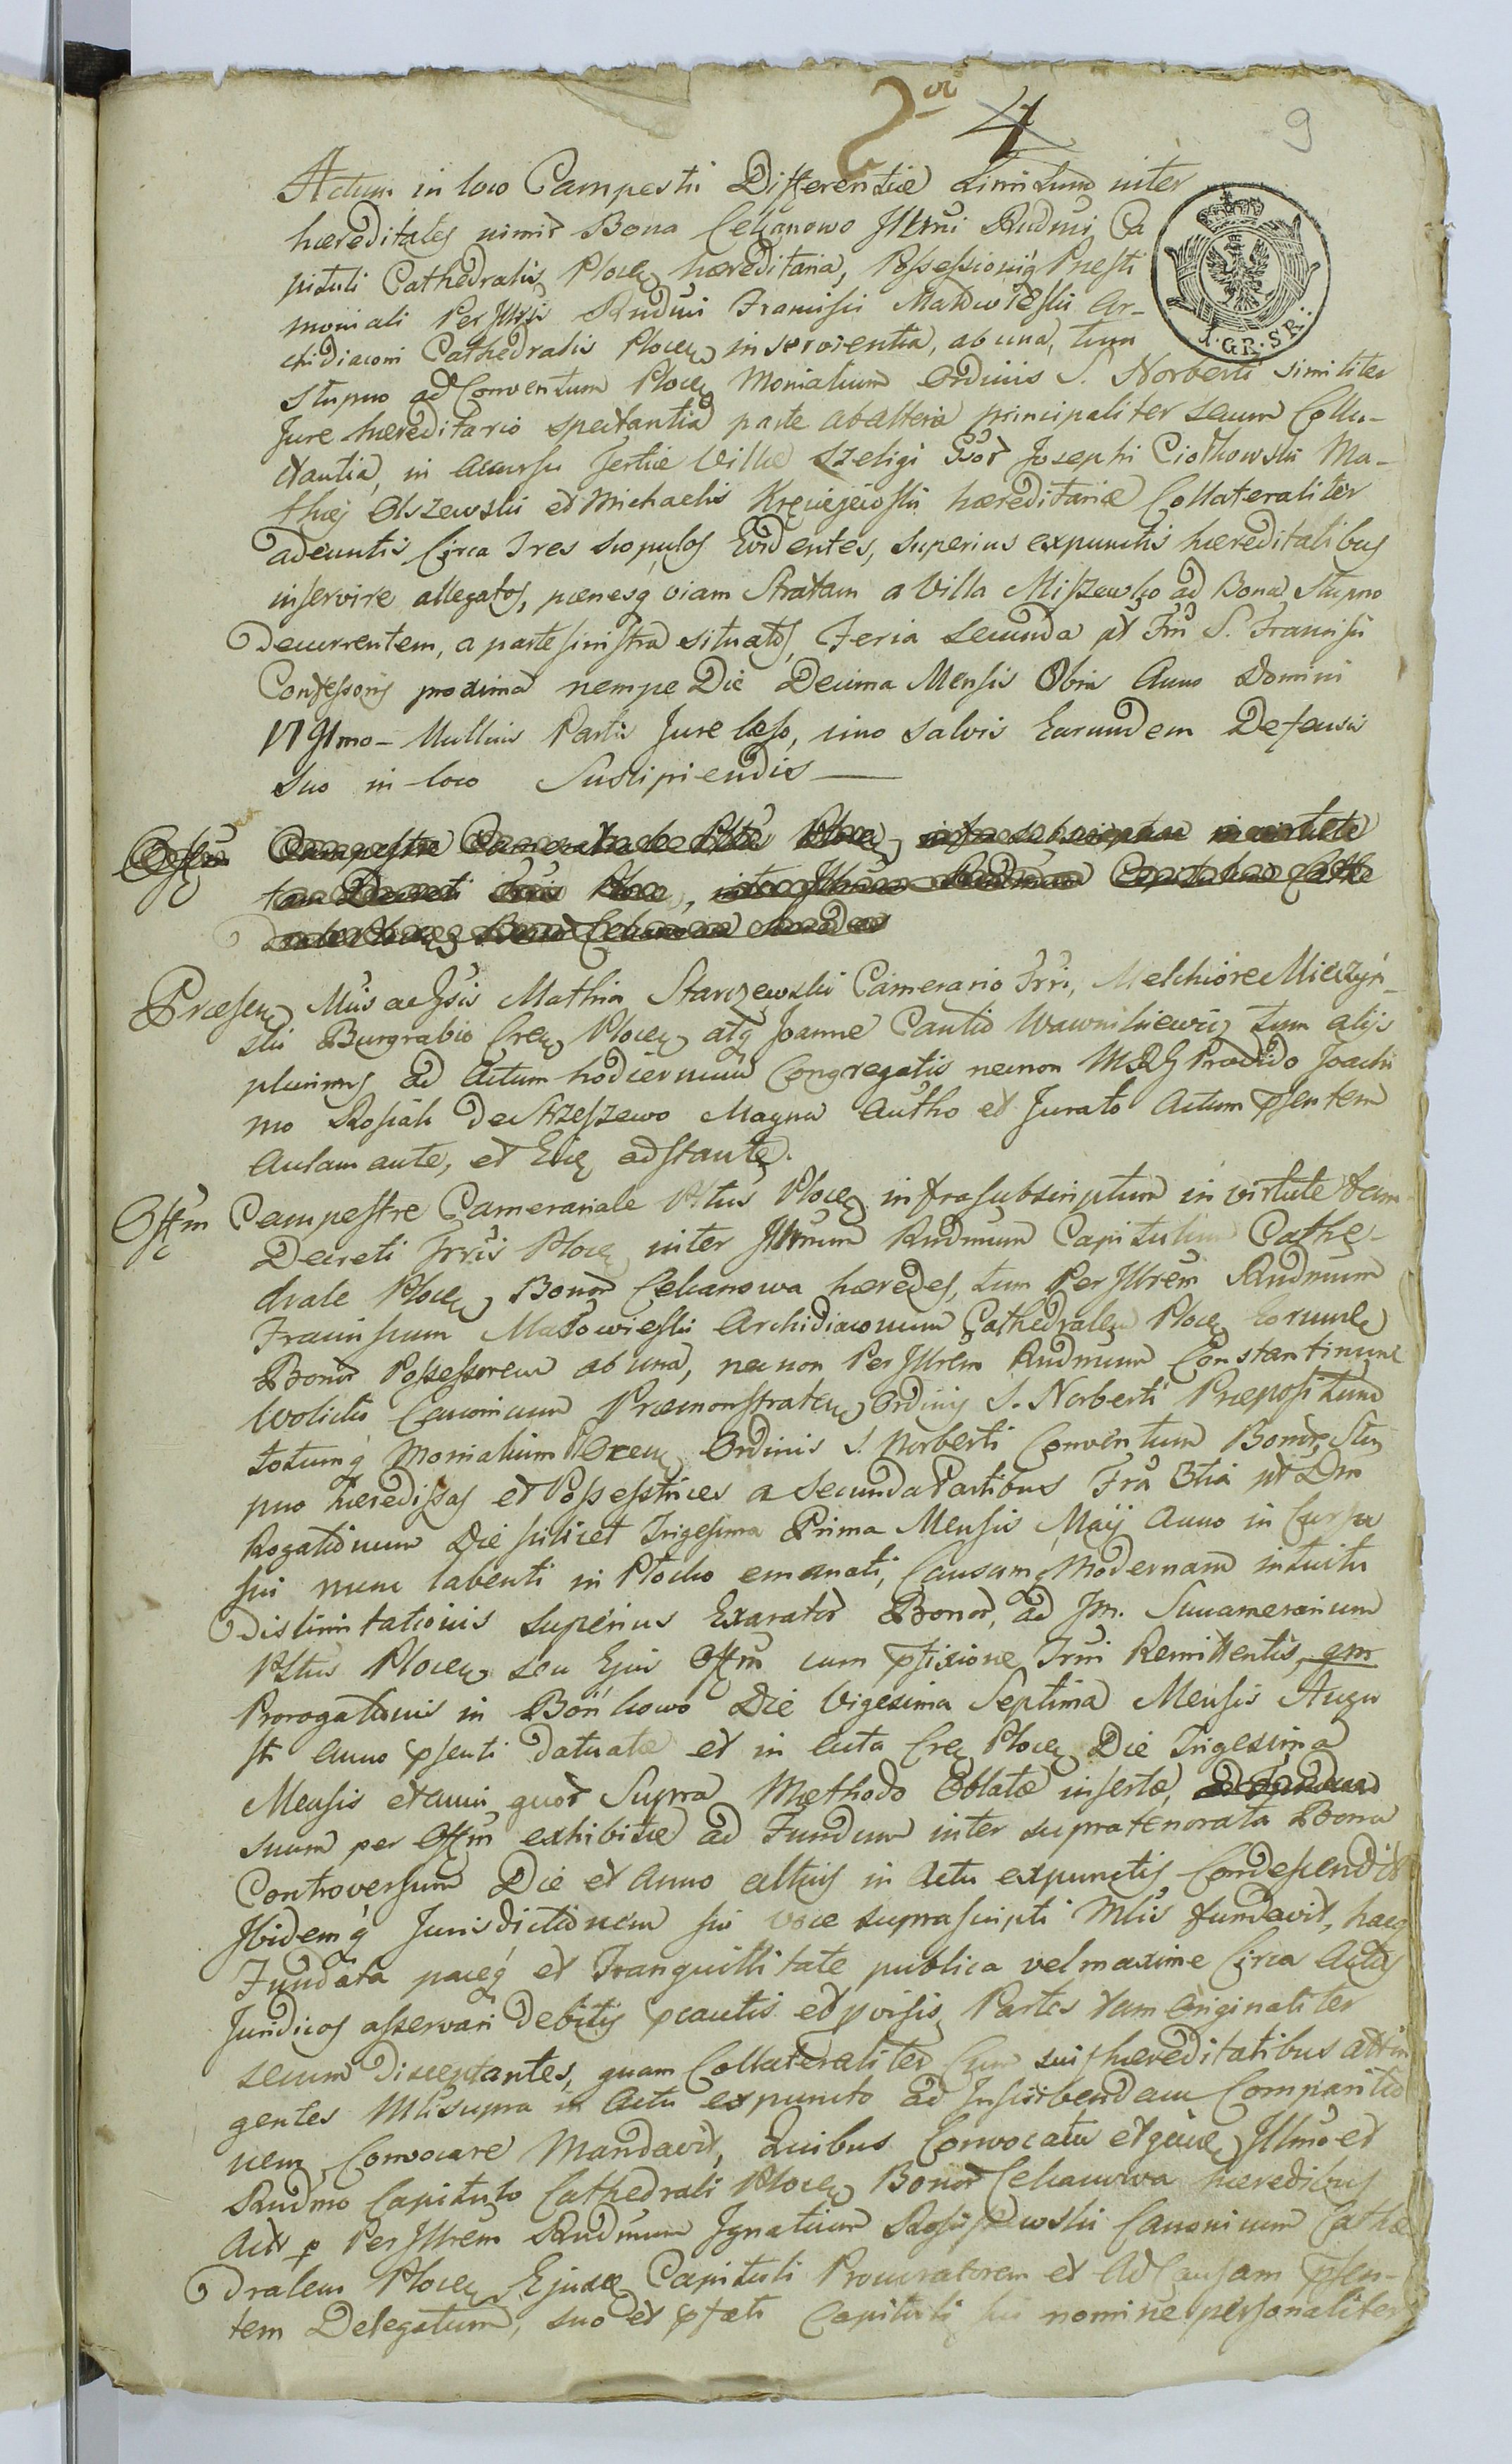 2do 4 9
Actum in loco Campestri Differentiæ Limitum inter
hæreditates nimir Bona Cekanowo Illrmi Rudmi Ca
pituli Cathedralis Plocen hæreditaria, Possessioniq Presti
moniali Per Illris Rudmi Francisci Makowieski Ar-
chidiaconi Cathedralis Plocen inservientia, ab una, tum
Stupno ad Conventum Plocen Monialium Ordinis S. Norberti similiter
Jure hæreditario spectantia parte ab altera principaliter secum Collu-
ctantia, in accursu Tertiæ Villæ Szeligi Gsor Josephi Ciołkowski Ma-
thiæ Olszewski et Michaelis hæreditariæ Collateraliter
adeuntis Circa Tres scopulos Evidentes, superius expunctis hæreditatibus
inservire allegatos, penesq viam Stratam a Villa Miszewko ad Bona Stupno
Decurrentem, a parte sinistra situatos, Feria secunda pt Fm S. Francisci
Confessoris proxima nempe Die Decima Mensis 8bris Anno Domini
1791mo - Nullius Partis Jure læso, imo salvis Earundem Defensis
suo in loco Suscipiendis
Offm Campestre Camerariale Pltus Plocen infrascriptum in virtute
tam Decreti Trris Plocen, inter Illrmum Rudmum Capitulum Cathe
drale Plocen Bonor Cekanowa hæredes
Præsen Mtis ac Gsis Mathia Starczewski Camerario Trri, Melchiore Mierzyń-
ski Burgrabio Cren Plocen atq Joanne Cantio tum alijs
plurimis ad Actum hodiernum Congregatis necnon M & G Provido Joachi
mo Rosiak De Strzeszewo Magna Autho et Jurato Actum pstentem
Aclamante, et Eice adstante.
Offm Campestre Camerariale Pltus Plocen infrasubscriptum in virtute tam
Decreti Trris Plocen inter Illrmum Rudmum Capitulum Cathe-
drale Plocen Bonor Cekanowa hæredes, tum Per Illrem Rudmum
Franciscum Makowieski Archidiaconum Cathedralem Plocen Eorunde
Bonor Possessorem ab una, necnon Per Illrem Rudmum Constantinum
Wolicki Canonicum Præmonstraten Ordinis S. Norberti Præpositum
totumq Monialium Plocen Ordinis S. Norberti Conventum Bonor Stu
pno hæredissas et Possestrices a secunda Partibus Fra 3tia pt Dm
Rogationum Die scilicet Trigesima Prima Mensis Maij Anno in Cursu
sui nunc labenti in Płocko emanati, Causamq Modernam intuitu
Dislimitationis superius Exarator Bonor, ad Jm. Succamerarium
Pltus Plocen seu Ejus Offm cum pfixione Trmi Remittentis, qm
Prorogationis in Bońkowo Die Vigesima Septima Mensis Augu
sti Anno psenti datuatæ et in Acta Cren Plocen Die Trigesima
Mensis et anni quor Supra Methodo Oblatæ insertæ, ad Fundum
suum per Offm exhibitæ ad Fundum inter supratenorata Bona
Controversum Die et Anno altius in Actu expunctis, Condescendit
Ibidemq Jurisdictionem sui voce suprascripti Mlis fundavit, hacq
Fundata paceq et Tranquillitate publica vel maxime Circa Actus
Juridicos asservari Debitis pcautis et pvisis, Partes tam originaliter
secum Disceptantes, quam Collateraliter Cum suis hæreditatibus attin
gentes Mli supra in Actu expuncto ad Inscribendam Comparitio
nem Convocare Mandavit, Quibus Convocatis Illmo et
Rudmo Capitulo Cathedrali Plocen Bonor Cekanowa hæredibus
Act p Per Illrem Rudmum Ignatium Canonicum Cathe
dralem Plocen Ejusde Capituli Procuratorem et Ad Causam psen-
tem Delegatum, suo et pfati Capituli sui nomine personaliter
J. GR. SR.